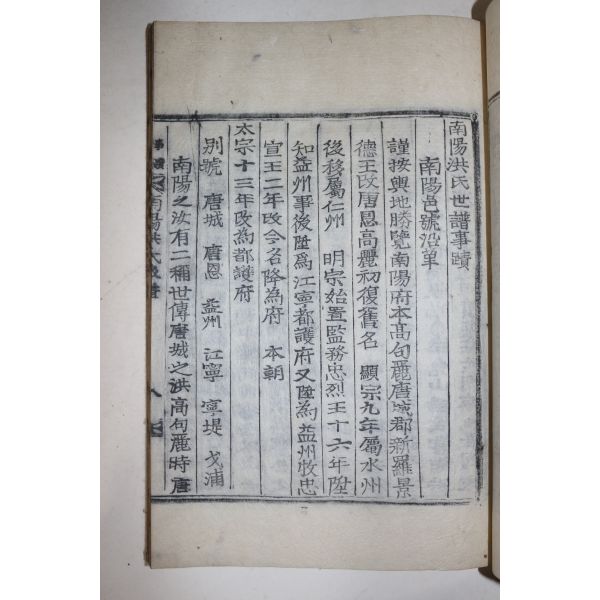 南陽洪氏世譜事蹟
南陽邑號沿革
謹按輿地勝覽南陽府本高句麗唐城郡新羅景
德王改唐恩高麗初復舊名 顯宗九年屬水州
後移屬仁州 明宗始置監務忠烈王十六年陞
知益州事後陞爲江寧都護府又陞為益州牧忠
宣王二年改今名降為府 本朝
太宗十三年改為都護府
別號 唐城 唐恩 益州 江寧 寧堤 戈浦
南陽之洪有二稱世傳唐城之洪高句麗時唐
南陽洪氏世譜